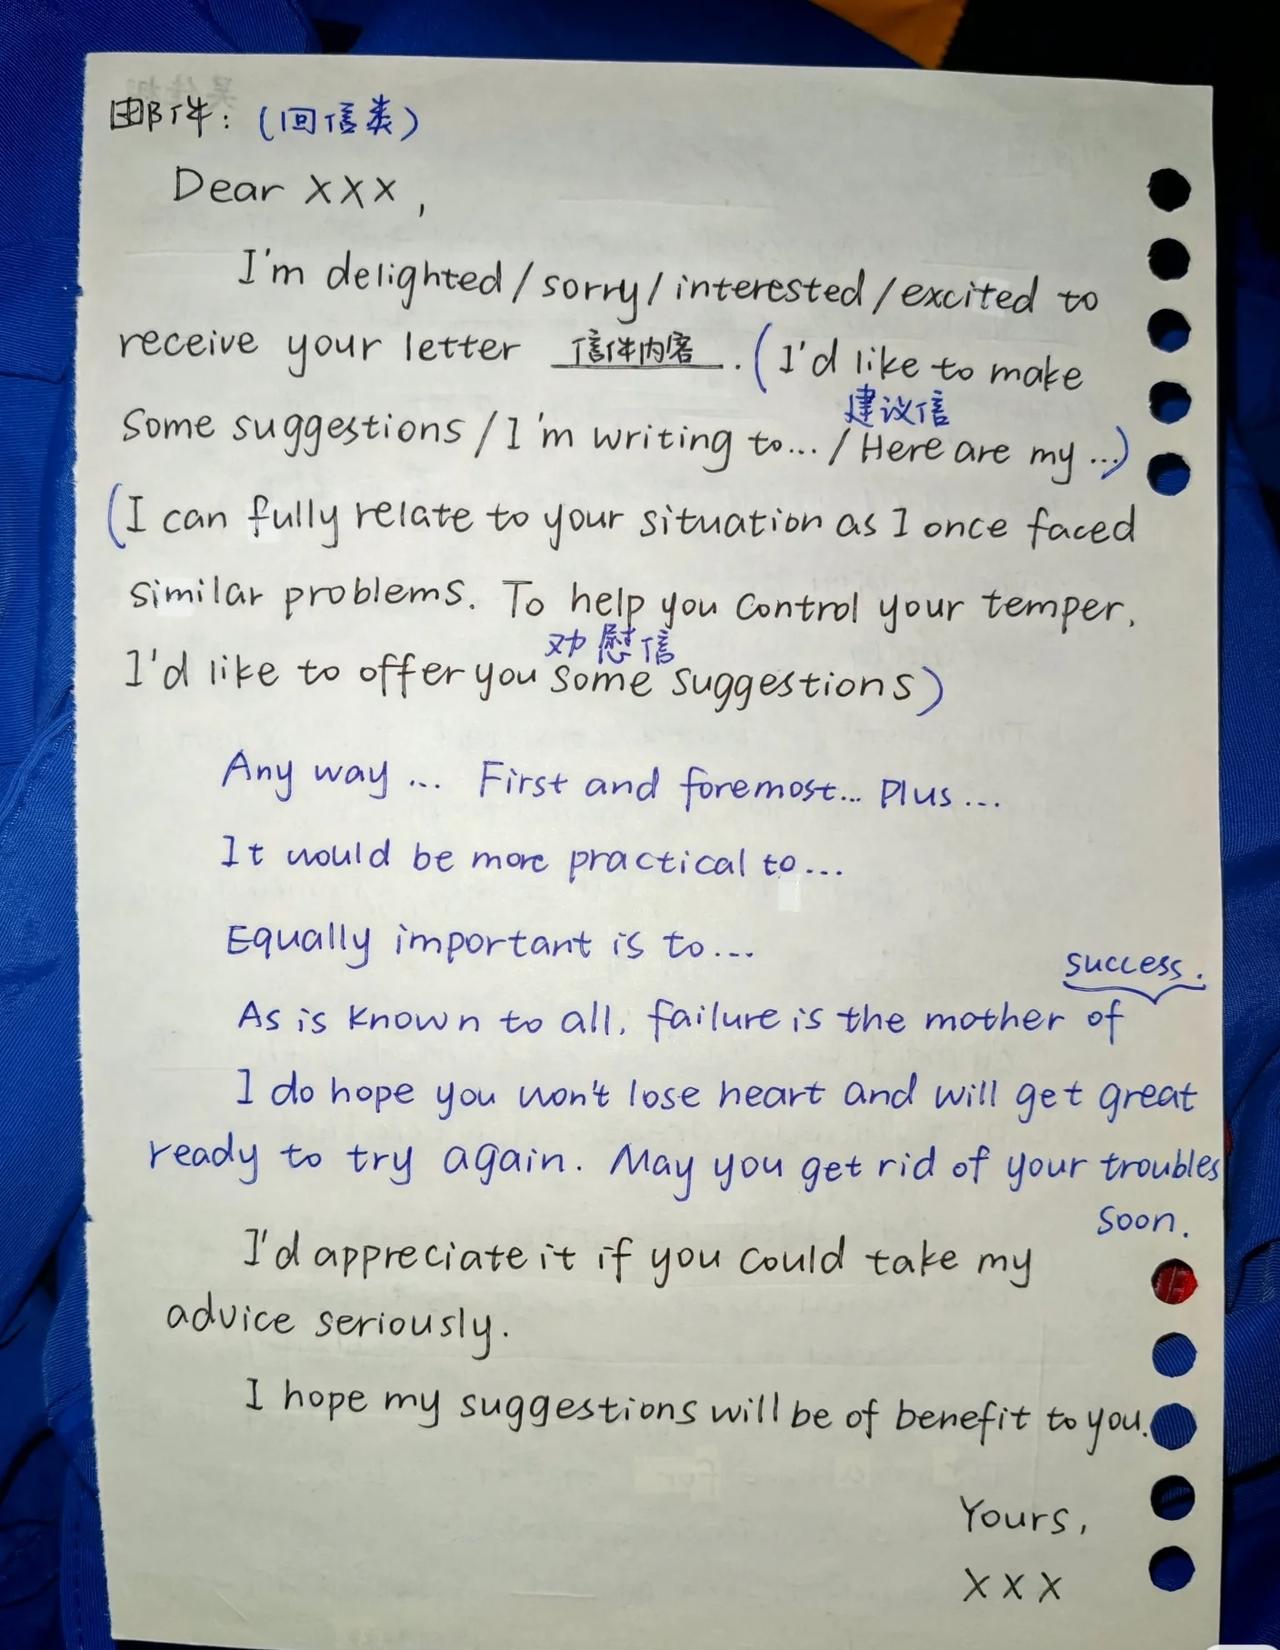 邮件：(回信类)
Dear XXX,
I'm delighted / sorry / interested / excited to
receive your letter 信件内容. (I'd like to make
建议信
Some suggestions / I'm writing to... / Here are my ...)
(I can fully relate to your situation as I once faced
similar problems. To help you control your temper,
劝慰信
I'd like to offer you some suggestions)
Any way ... First and foremost... Plus...
It would be more practical to...
Equally important is to...
success.
As is known to all, failure is the mother of
I do hope you won't lose heart and will get great
ready to try again. May you get rid of your troubles
soon.
I'd appreciate it if you could take my
advice seriously.
I hope my suggestions will be of benefit to you.
Yours,
XXX